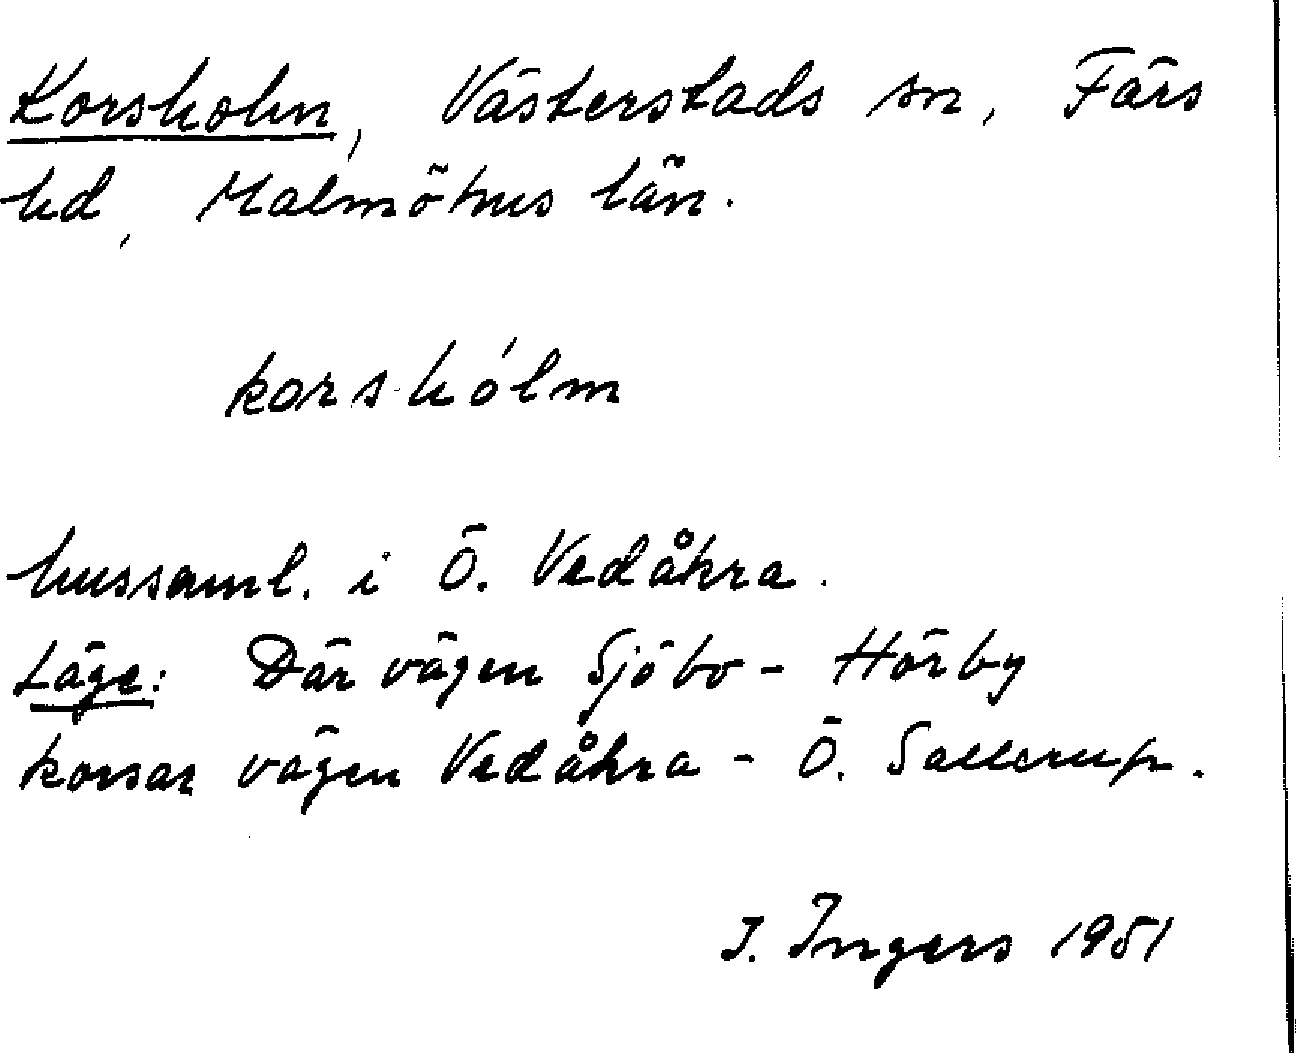 Korsholm, Västerstads sn, Färs
hd, Malmöhus län.
kors-hólm
hussaml. i Ö. Vedåkra.
Läge: Där vägen Sjöbo - Hörby
korsar vägen Vedåkra - Ö. Sallerup.
I. Ingers 1951